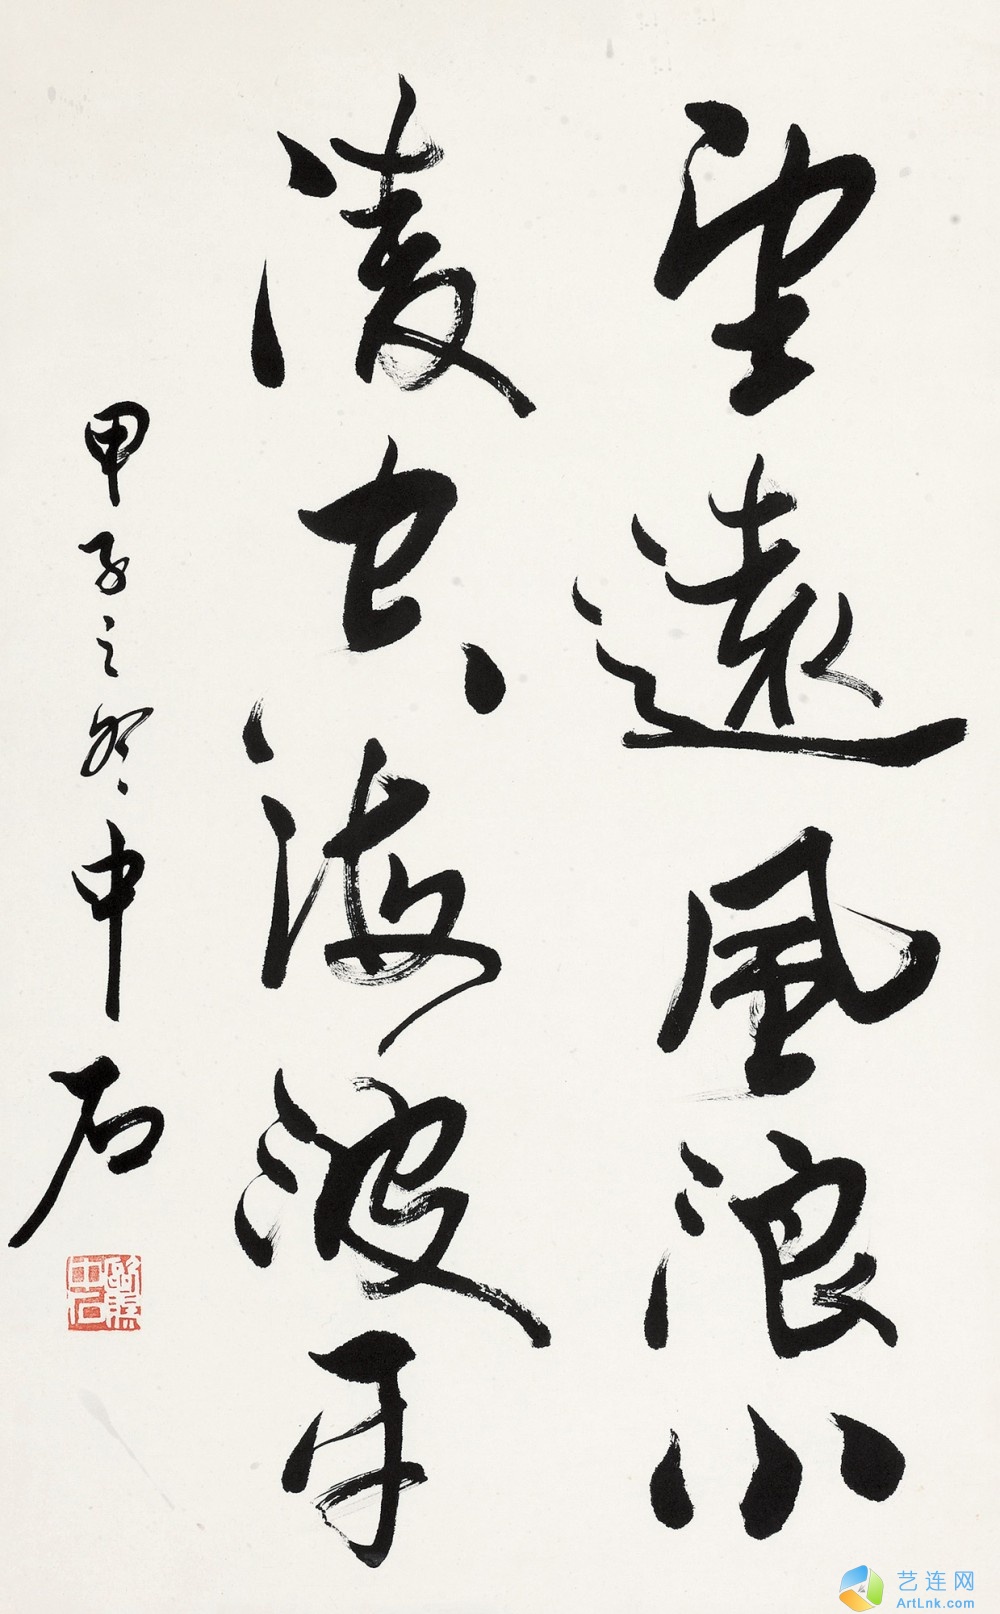 望遠風浪小
凌空海波平
甲子之冬中石
歐陽中石
艺连网
ArtLnk.com